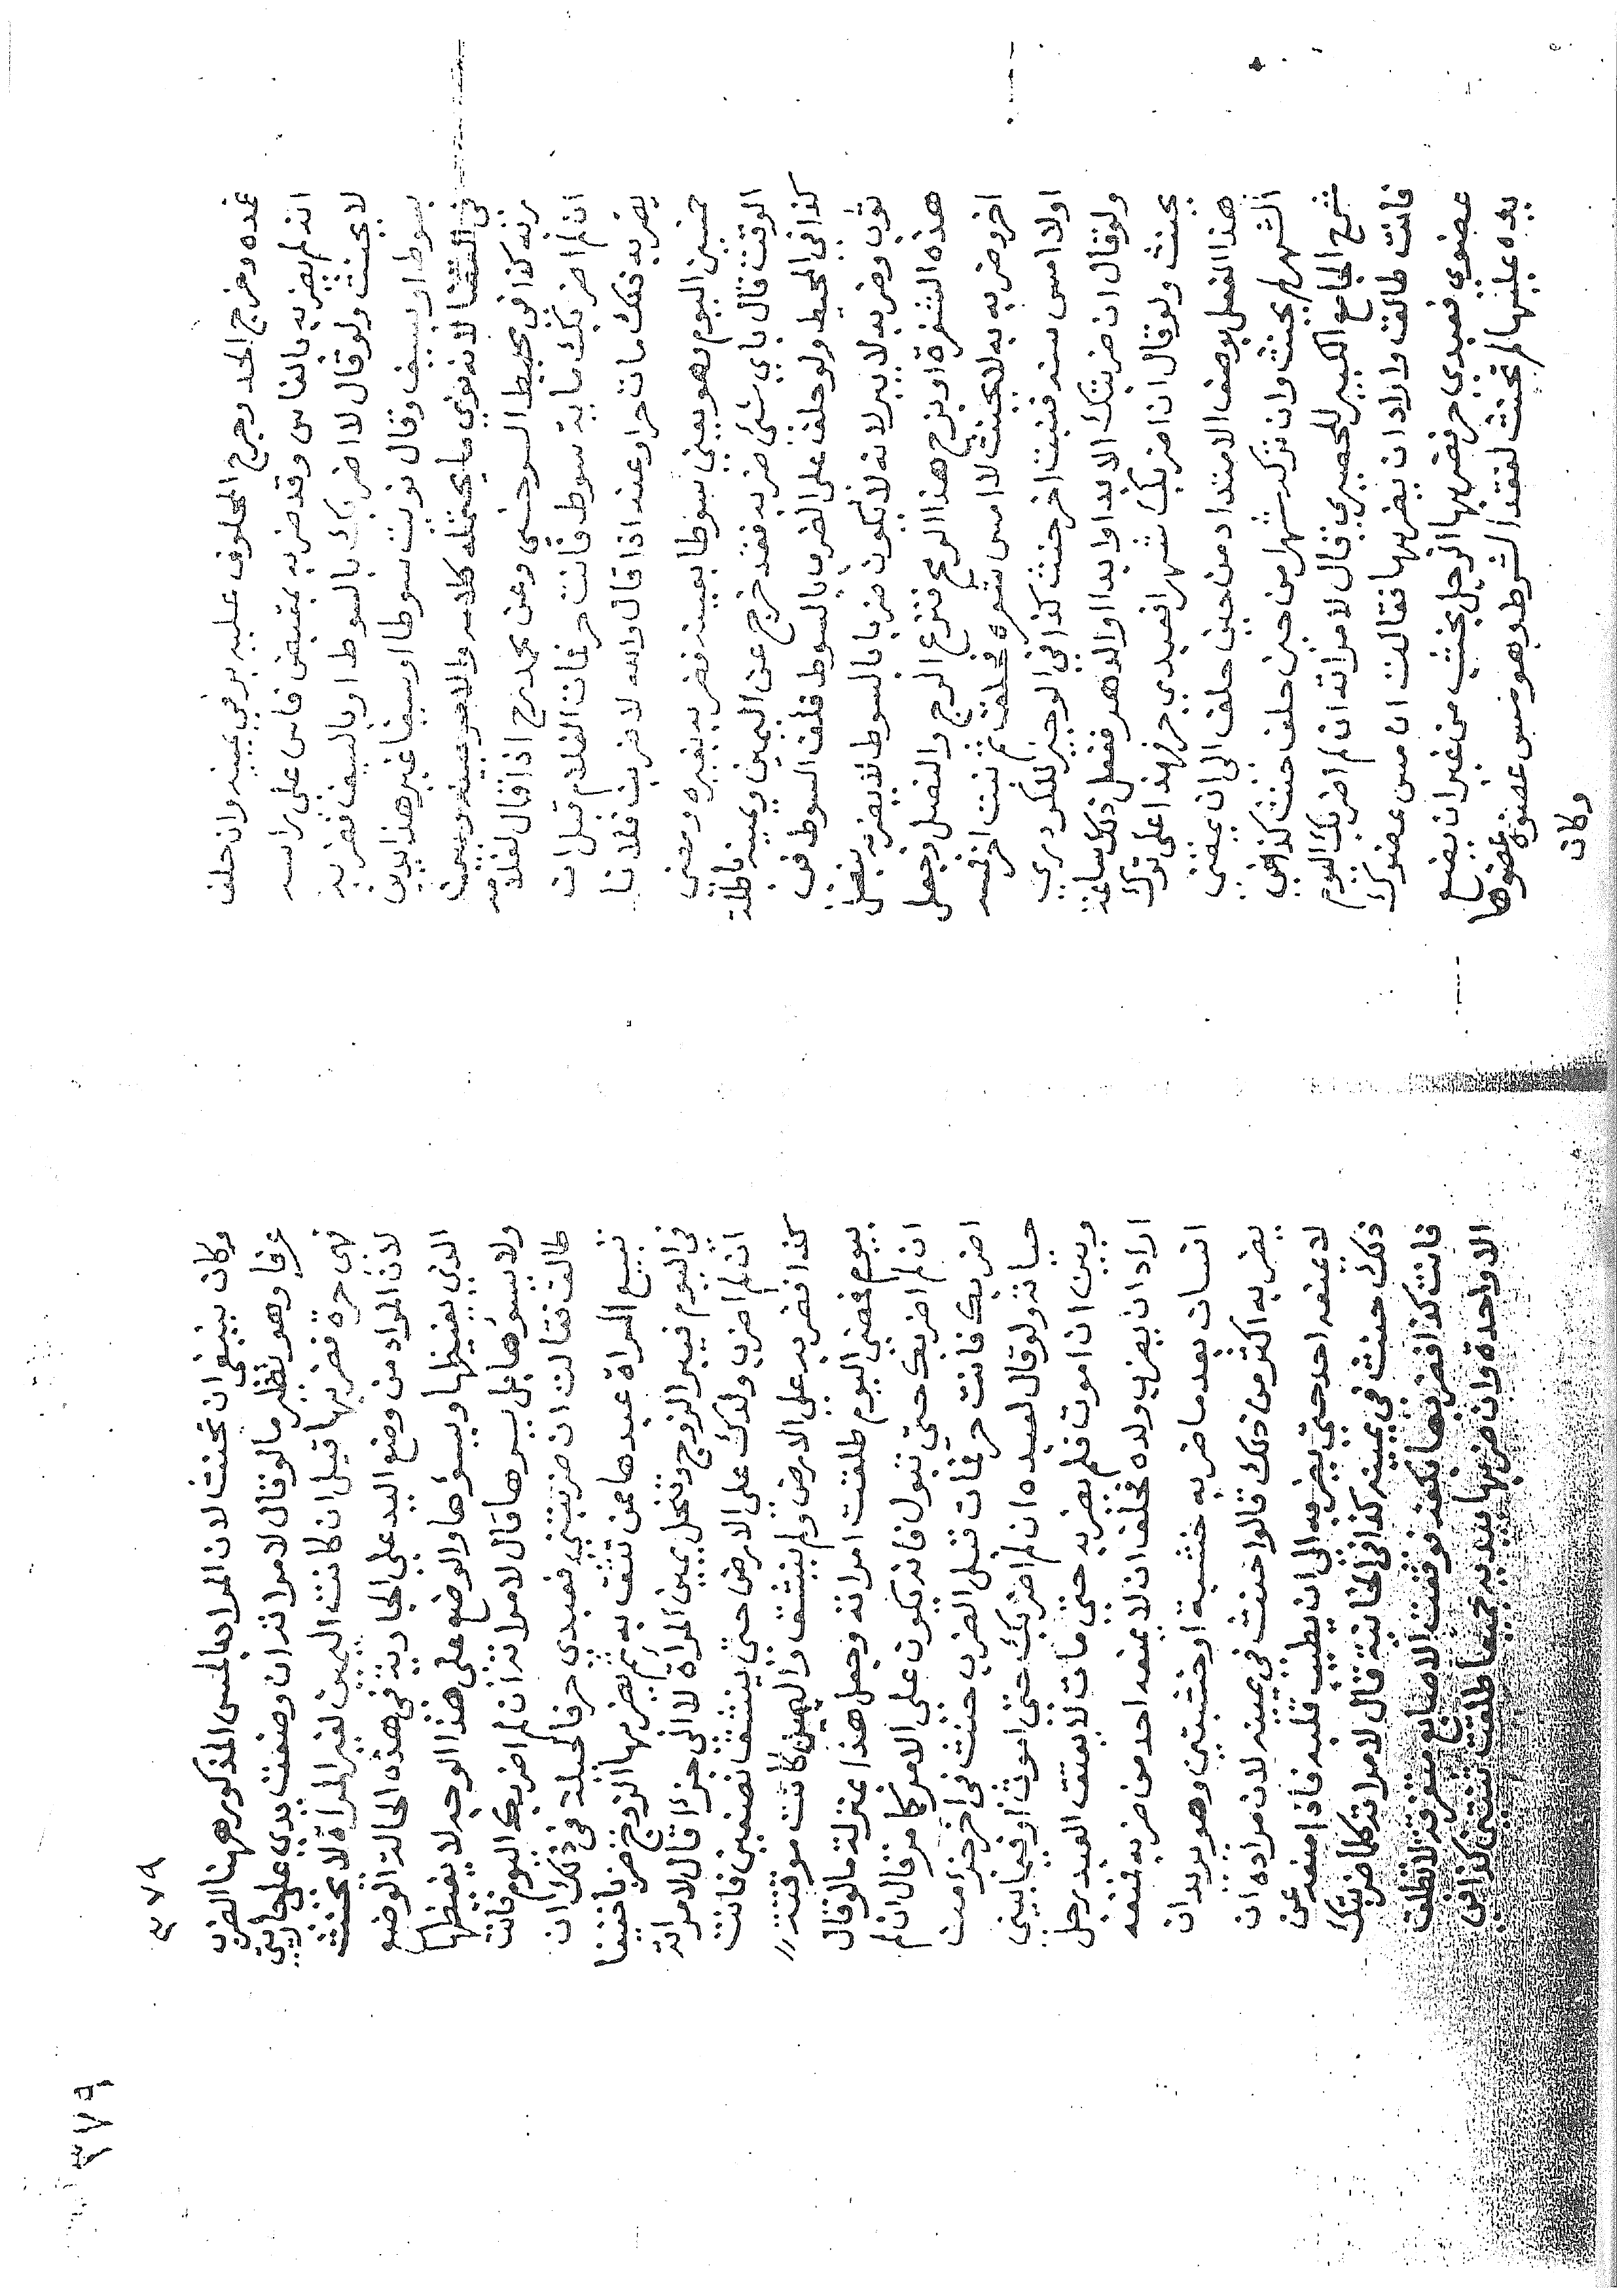 غمده وخرج الحد وجرح المحلوف عليه بر في يمينه وان حلف
انه لم يضربه بالفاس وقد ضربه بمقبض فاس على راسه
لا يحنث ولو قال لا اضربك بالسوط او بالسيف فضربه
بسوط او بسيف وقال نويت سوطا او سيفا غير هذا يدين
في القضا لانه نوي ما يحتمله كلامه والامر بينه وبين
ربه كذا في محيط السرخسي وعن محمد رح اذا قال لغلامه
ان لم اضربك ماية سوط فانت حر فمات الغلام قبل ان
يضربه ذلك مات حرا وعنه اذا قال والله لاضربن فلانا
خمسين اليوم وهو يعني سوطا بعينه فضربه بغيره ومضى
الوقت قال باي شئ ضربه فقد خرج عن اليمين ويمينه باطلة
كذا في المحيط ولو حلف على الضرب بالسوط فلف السوط في
ثوب وضربه لا يبر لانه لا يكون ضربا بالسوط لا يضربه بنصل
هذه الشفرة او بزج هذا الرمح فنزع الزج والنصل وجعل
اخر وضربه به لا يحنث لا امس شعره فحلق ثم نبت اخر فمسه
اولا امس سنه فنبت اخر حنث كذا في الوجيز للكردري
ولو قال ان ضربتك الابد او ابدا او الدهر ففعل ذلك ساعة
يحنث ولو قال ان اضربك شهرا فعبدي حر فهذا على ترك
هذا الفعل بوصف الامتداد من حين حلف الى ان يمضي
الشهر لم يحنث وان تركه شهرا من حين حلف حنث كذا في
شرح الجامع الكبير للحصيري قال لامراته ان لم اضربك اليوم
فانت طالق واراد ان يضربها فقالت ان مس عضوك
عضوي فعبدي حر فضربها الرجل بخشب من غير ان يضع
يده عليها لم تحنث لفقد الشرط وهو مس عضوه عضوها
وكان
٣٧٩
وكان ينبغي ان تحنث لان المراد بالمس المذكور ههنا الضرب
عرفا وهو نظير ما لو قال لامراته ان وضعت يدي على جاريتي
فهي حرة فضربها قيل ان كانت اليمين لغير المراة لا يحنث
لان المراد من وضع اليد على الجارية في هذه الحالة الوضع
الذي يغيظها ويسؤها والوضع على هذا الوجه لا يغيظها
ولا يسؤها بل يسرها قال لامراته ان لم اضربك اليوم فانت
طالق فقالت ان ضربتني فعبدي حر فالحيلة في ذلك ان
تبيع المراة عبدها ممن تثق به ثم يضربها الزوج ضربا خفيفا
في اليوم فيبر الزوج وتنحل يمين المراة لا الى جزا قال لامراته
ان لم اضرب ولدك على الارض حتى ينشق نصفين فانت
كذا فضربه على الارض ولم ينشق واليمين كانت موقتة
بيوم فمضي اليوم طلقت امراته وجعل هذا بمنزلة ما لو قال
ان لم اضربك حتى تبول فانه يكون على الامر كما مر قال ان لم
اضربك فانت حر فمات قبل الضرب حنث في اخر جزء من
حياته ولو قال لعبده ان لم اضربك حتى اموت او فيما بيني
وبين ان اموت فلم يضربه حتى مات لا يعتق العبد رجل
اراد ان يضرب ولده فحلف ان لا يمنعه احد من ضربه فمنعه
انسان بعد ما ضربه خشبة او خشبتين وهو يريد ان
يضربه اكثر من ذلك قالوا حنث في يمينه لان مراده ان
لا يمنعه احد حتى يضربه الى ان يطيب قلبه فاذا منعه عن
ذلك حنث في يمينه كذا في الخانية قال لامراته كلما ضربتك
فانت كذا فضربها بكفه فوقعت الاصابع متفرقة لا تطلق
الا واحدة وان ضربها بيديه جميعا طلقت ثنتين كذا في
٣٧٩